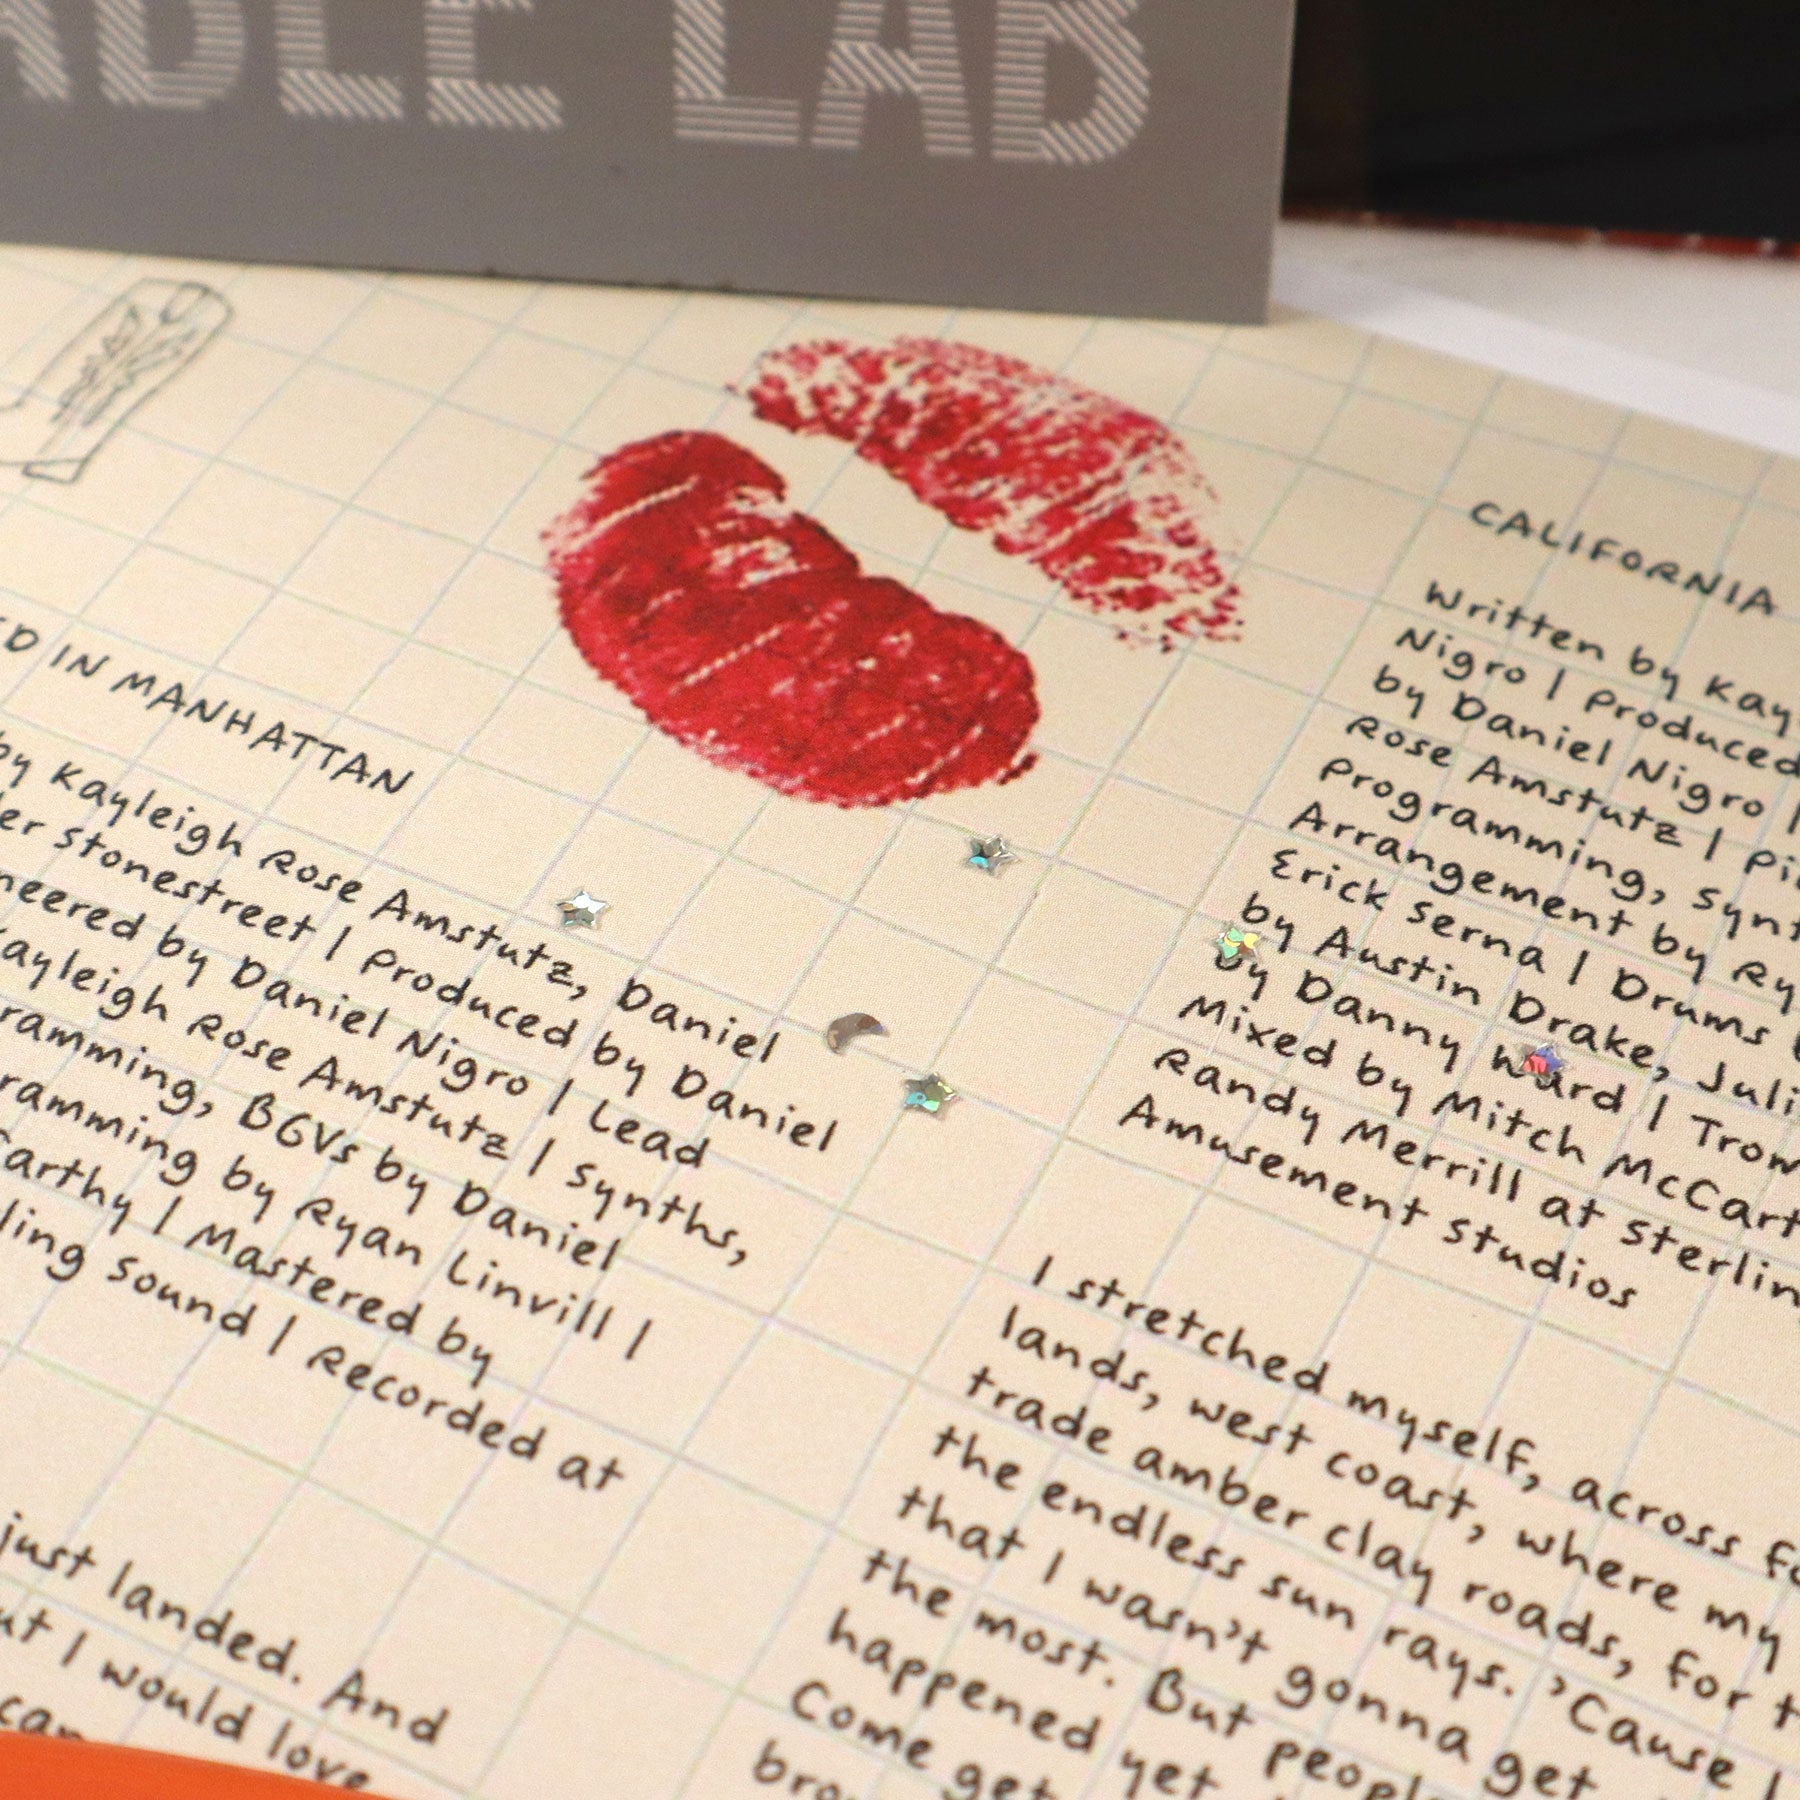 LAB
IN MANHATTAN
by Kayleigh Rose Amstutz, Daniel
Stonestreet | Produced by Daniel
by Daniel Nigro | Lead
Kayleigh Rose Amstutz | Synths,
BGVs by Daniel
by Ryan Linvill |
| Mastered by
Sound | Recorded at
just landed. And
I would love
CALIFORNIA
Written by
Nigro | Produced
by Daniel Nigro |
Rose Amstutz |
Programming,
Arrangement by
Erick Serna | Drums
by Austin Drake,
by Danny Ward |
Mixed by Mitch
Randy Merrill at
Amusement Studios
I stretched myself, across
lands, west coast, where my
trade amber clay roads, for
the endless sun rays. 'Cause I
that I wasn't gonna get
the most. But
happened yet
Come get